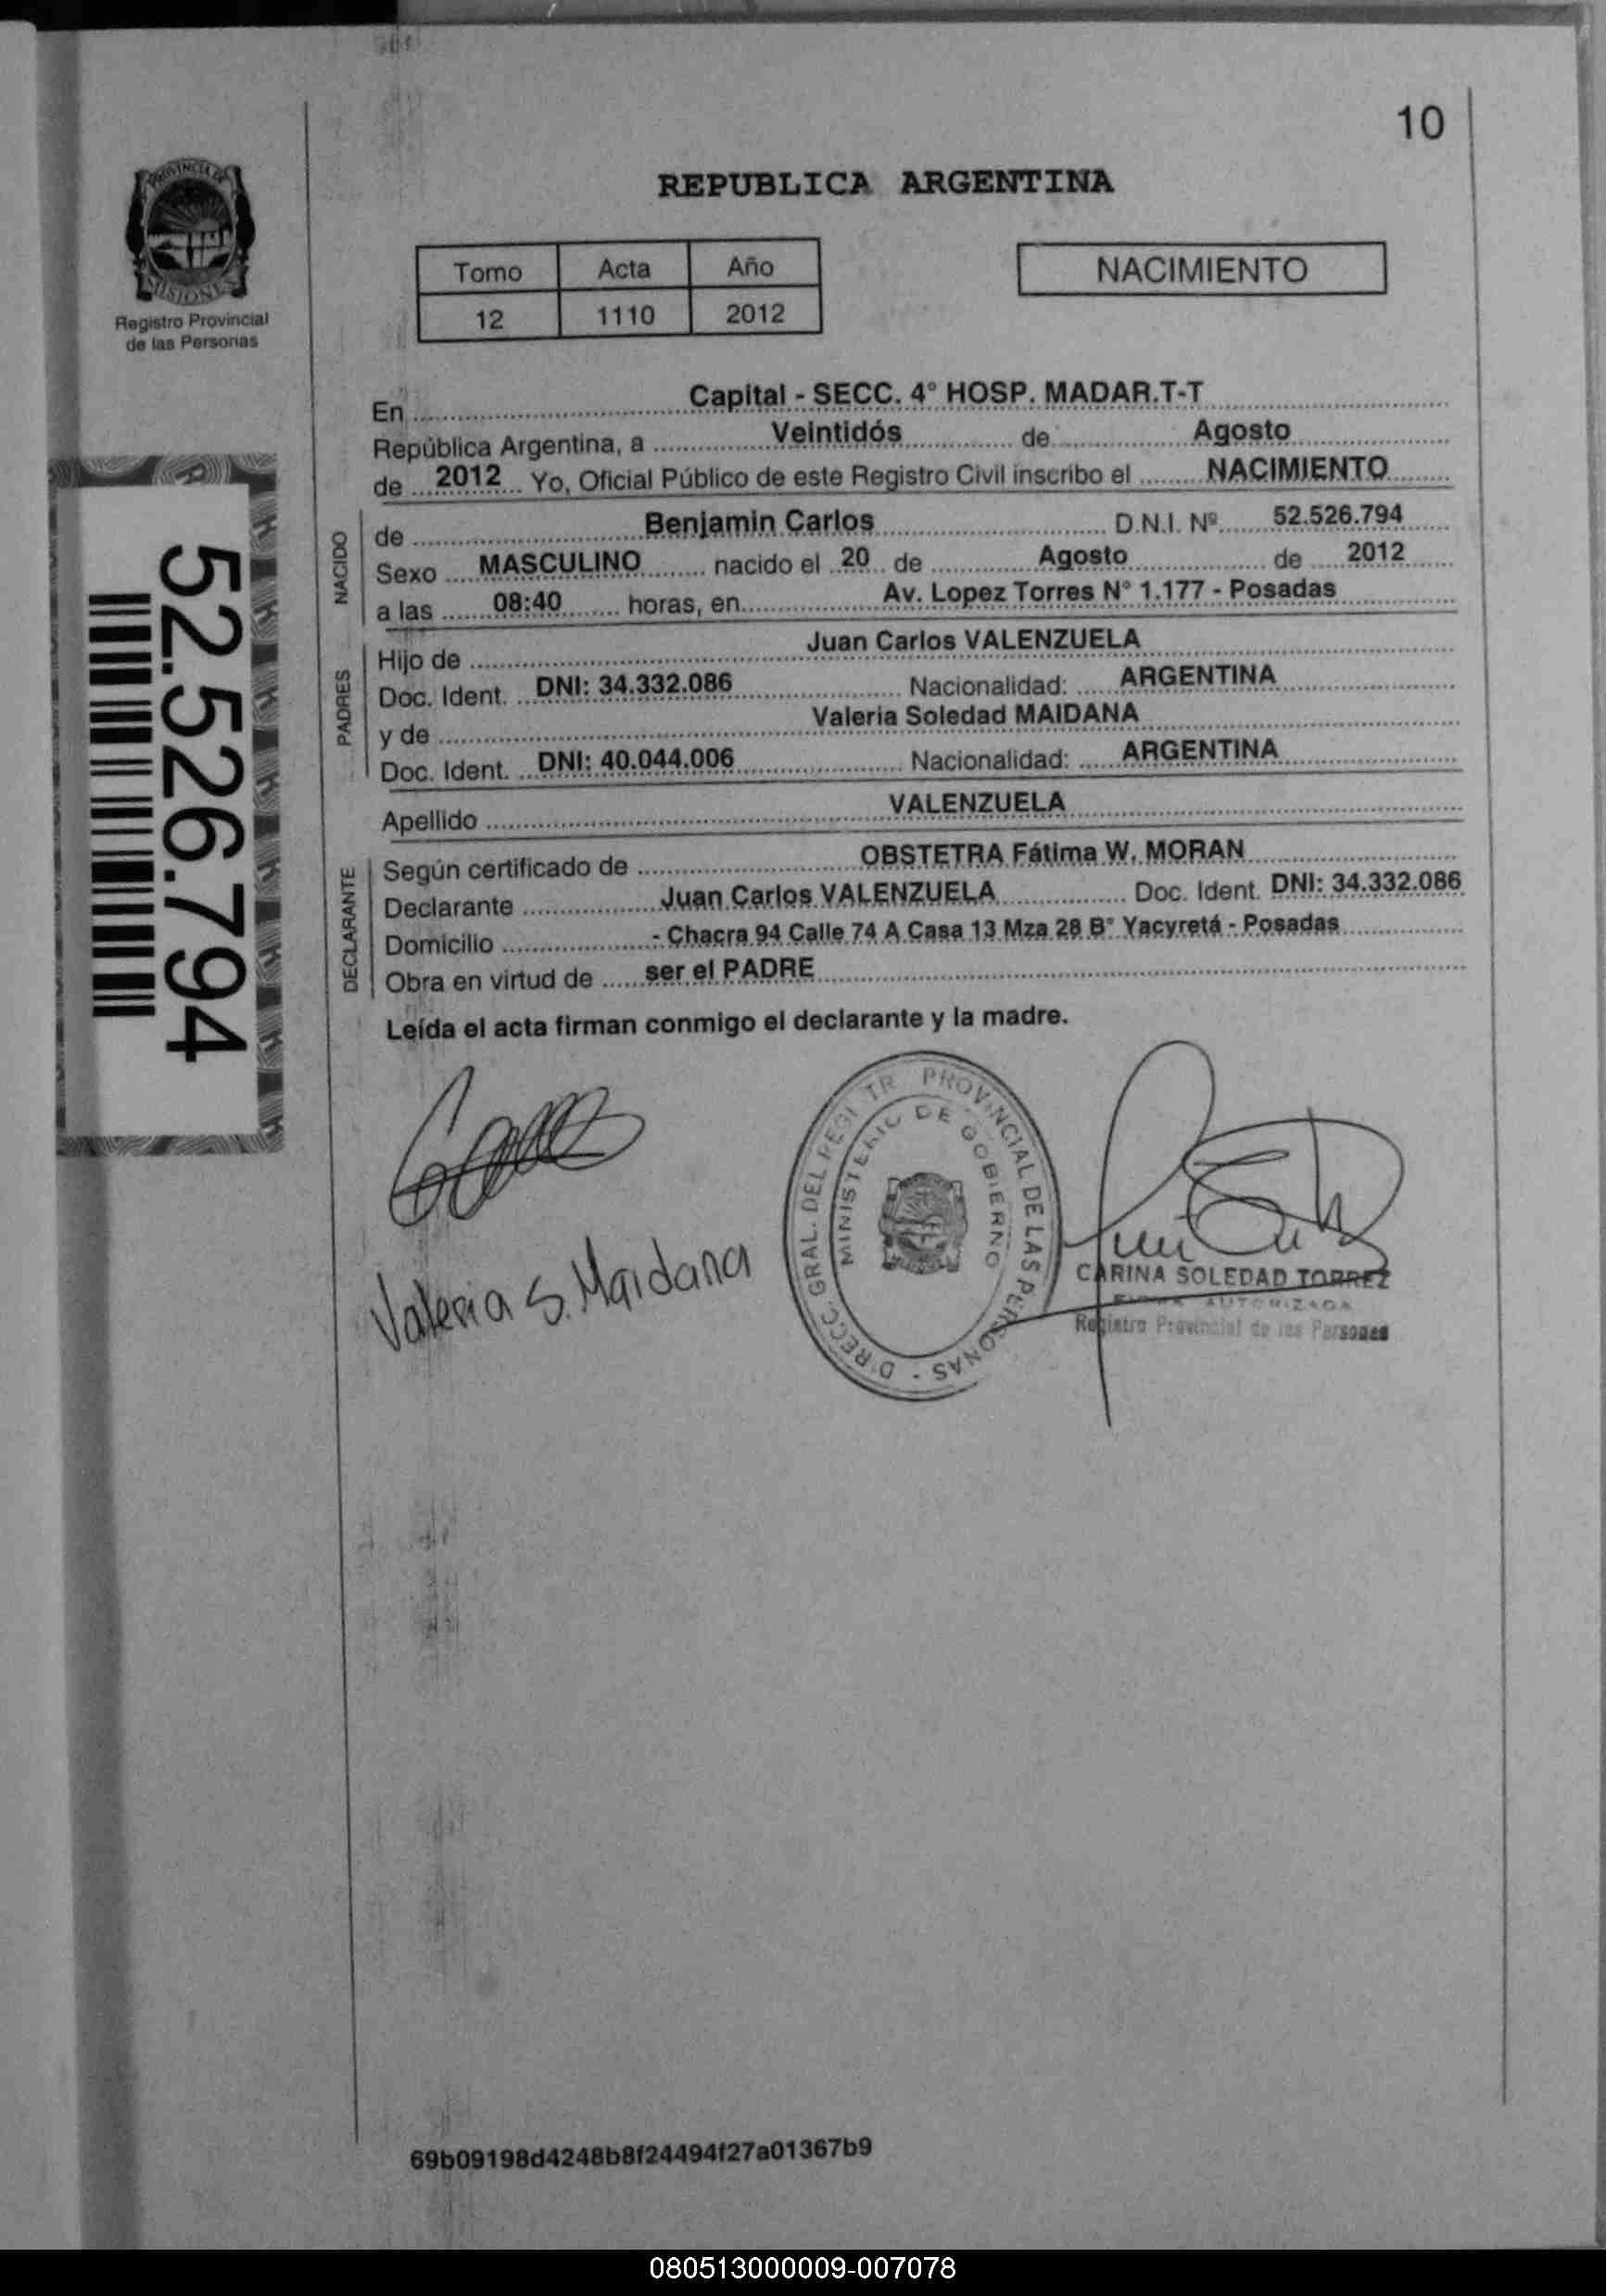 10
PROVINCIA DE
MISIONES
Registro Provincial
de las Personas
REPUBLICA ARGENTINA
Tomo Acta Año
12 1110 2012
NACIMIENTO
En Capital - SECC. 4° HOSP. MADAR.T-T
República Argentina, a Veintidós de Agosto
de 2012 Yo, Oficial Público de este Registro Civil inscribo el NACIMIENTO
NACIDO
de Benjamin Carlos D.N.I. Nº 52.526.794
Sexo MASCULINO nacido el 20 de Agosto de 2012
a las 08:40 horas, en Av. Lopez Torres N° 1.177 - Posadas
PADRES
Hijo de Juan Carlos VALENZUELA
Doc. Ident. DNI: 34.332.086 Nacionalidad: ARGENTINA
y de Valeria Soledad MAIDANA
Doc. Ident. DNI: 40.044.006 Nacionalidad: ARGENTINA
Apellido VALENZUELA
DECLARANTE
Según certificado de OBSTETRA Fátima W. MORAN
Declarante Juan Carlos VALENZUELA Doc. Ident. DNI: 34.332.086
Domicilio - Chacra 94 Calle 74 A Casa 13 Mza 28 B° Yacyretá - Posadas
Obra en virtud de ser el PADRE
Leída el acta firman conmigo el declarante y la madre.
52.526.794
Valeria S. Maidana
DIRECC. GRAL. DEL REGISTR PROVINCIAL DE LAS PERSONAS -
MINISTERIO DE GOBIERNO
CARINA SOLEDAD TORREZ
FIRMA AUTORIZADA
Registro Provincial de las Personas
69b09198d4248b8f24494f27a01367b9
080513000009-007078